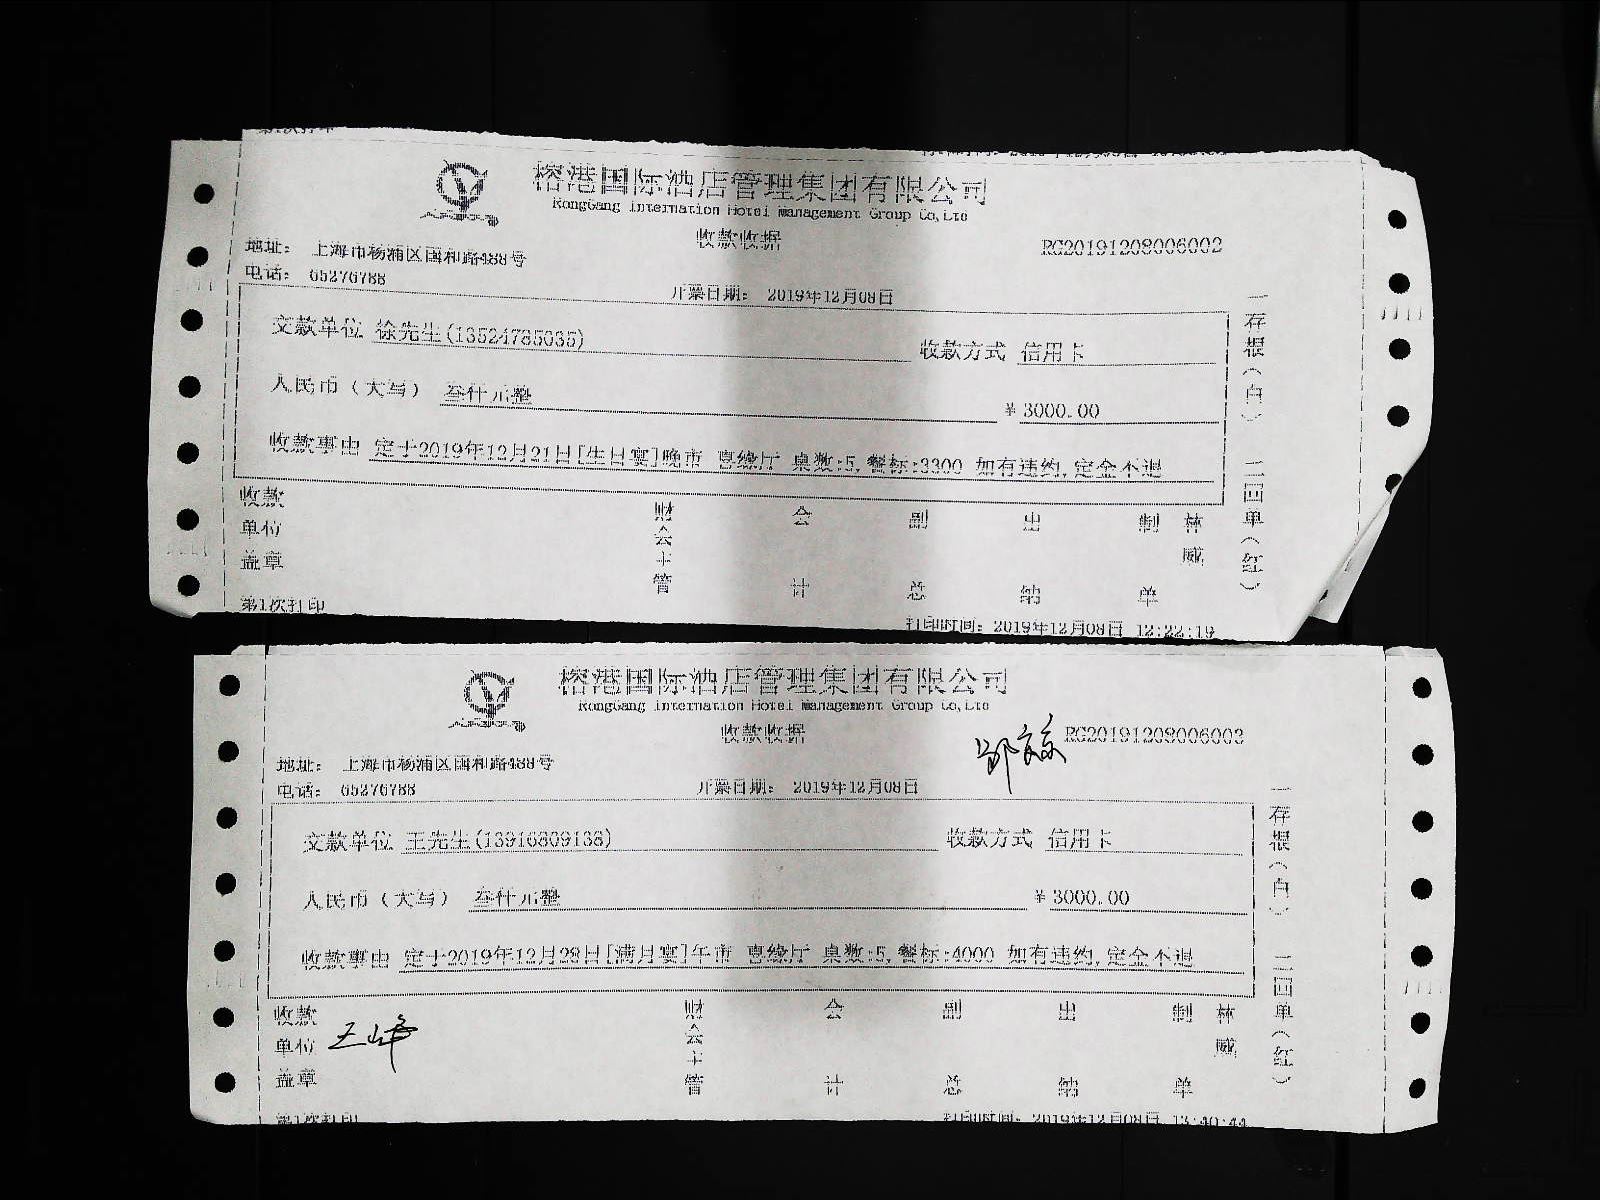 榕港国际酒店管理集团有限公司
RongGang Internation Hotel Management Group Co,Ltd
收款收据
RG20191208006002
地址： 上海市杨浦区国和路488号
电话： 65276788
开票日期： 2019年12月08日
交款单位 徐先生(13524785035) 收款方式 信用卡
人民币（大写） 叁仟元整 ¥ 3000.00
收款事由 定于2019年12月21日[生日宴]晚市 喜缘厅 桌数:5,餐标:3300 如有违约,定金不退
收款单位盖章 财会主管 会计 副总 出纳 制单 林威
一存根（白） 二回单（红）
第1次打印 打印时间： 2019年12月08日 12:22:19
榕港国际酒店管理集团有限公司
RongGang Internation Hotel Management Group Co,Ltd
收款收据
RG20191208006003
地址： 上海市杨浦区国和路488号
电话： 65276788
开票日期： 2019年12月08日
交款单位 王先生(13916809138) 收款方式 信用卡
人民币（大写） 叁仟元整 ¥ 3000.00
收款事由 定于2019年12月28日[满月宴]午市 喜缘厅 桌数:5,餐标:4000 如有违约,定金不退
收款单位盖章 王峰 财会主管 会计 副总 出纳 制单 林威
一存根（白） 二回单（红）
第1次打印 打印时间： 2019年12月08日 13:40:44